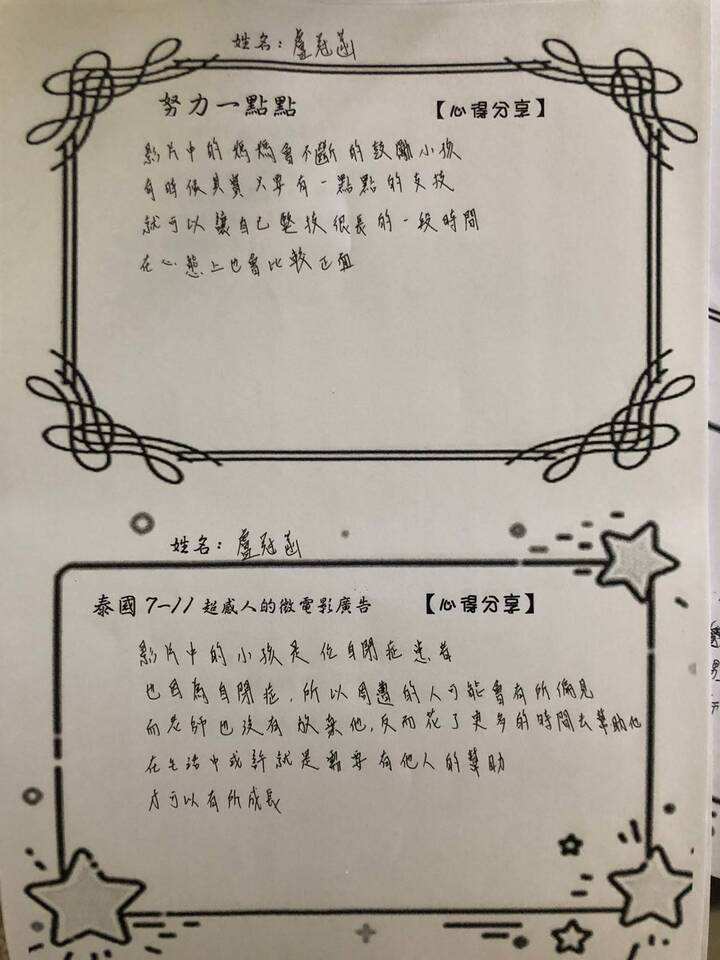 姓名：盧冠菡
努力一點點 【心得分享】
影片中的媽媽會不斷的鼓勵小孩
有時候其實只要有一點點的支持
就可以讓自己堅持很長的一段時間
在心態上也會比較正面
姓名：盧冠菡
泰國7-11超感人的微電影廣告 【心得分享】
影片中的小孩是位自閉症患者
也因為自閉症，所以周遭的人可能會有所偏見
而老師也沒有放棄他，反而花了更多的時間去幫助他
在生活中或許就是需要有他人的幫助
才可以有所成長